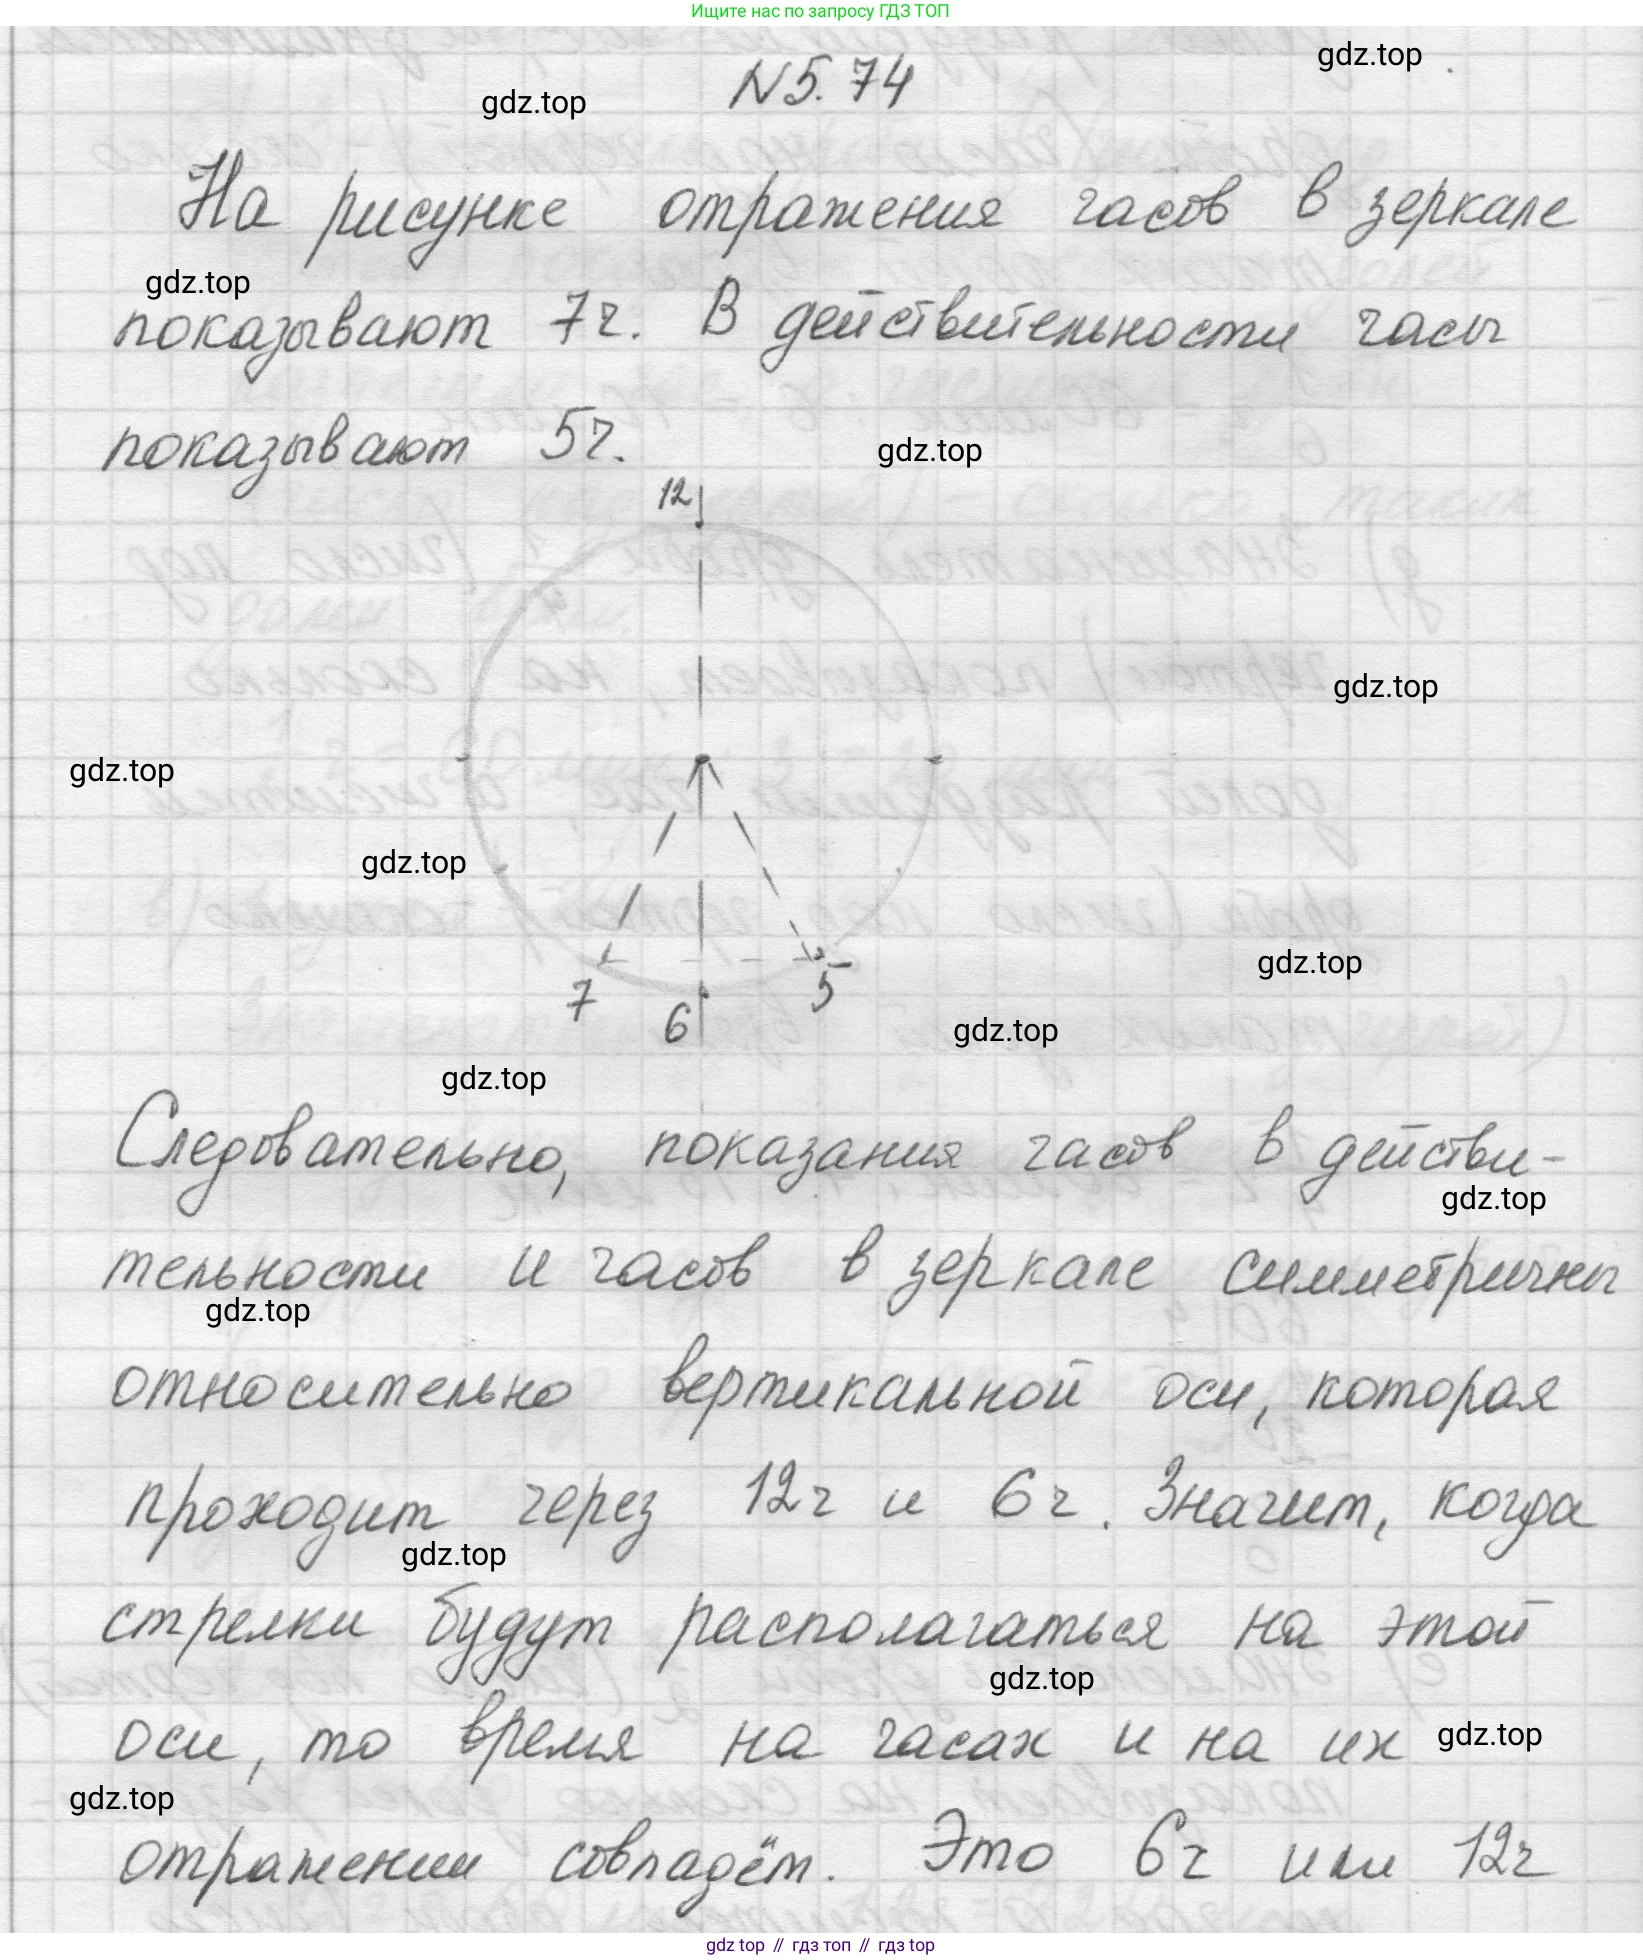 Ищите нас по запросу ГДЗ ТОП
gdz.top
N 5.74
gdz.top
На рисунке отражения часов в зеркале
gdz.top
показывают 7ч. В действительности часы
показывают 5ч.
gdz.top
12
gdz.top
gdz.top
gdz.top
gdz.top
7
6
5
gdz.top
gdz.top
Следовательно, показания часов в действи-
gdz.top
тельности и часов в зеркале симметричны
gdz.top
относительно вертикальной оси, которая
проходит через 12ч и 6ч. Значит, когда
gdz.top
стрелки будут располагаться на этой
gdz.top
оси, то время на часах и на их
gdz.top
gdz.top
отражении совпадёт. Это 6ч или 12ч
gdz top // гдз топ // гдз top